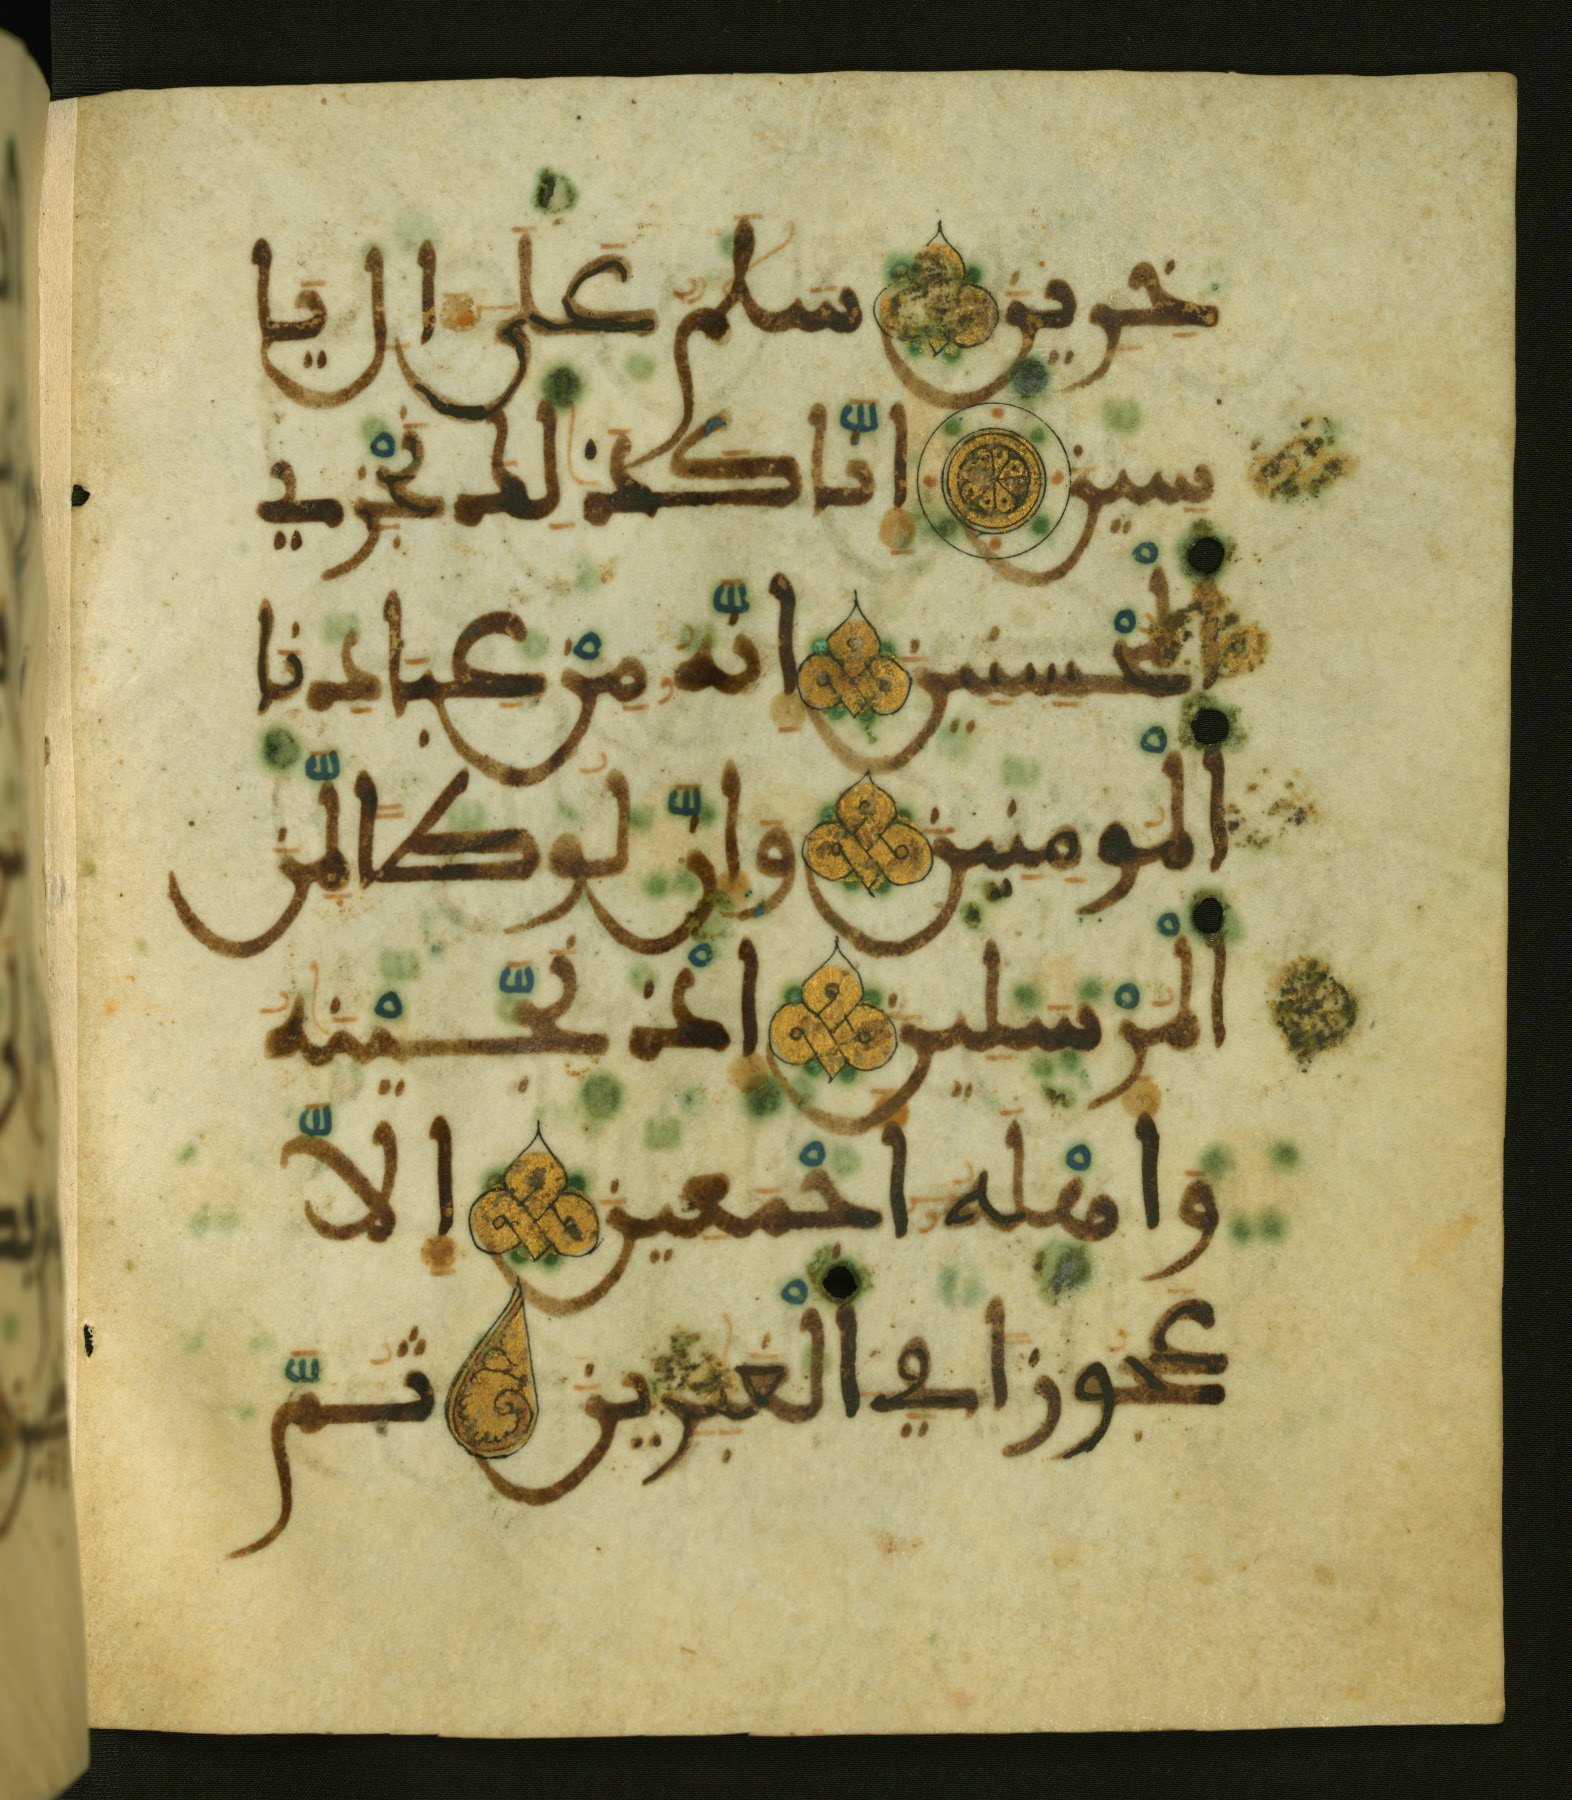 خرين سلم على ال يا
سين انا كذلك نجزي
المحسنين انه من عبادنا
المومنين وان لوطا لمن
المرسلين اذ نجينه
واهله اجمعين الا
عجوزا في الغبرين ثم